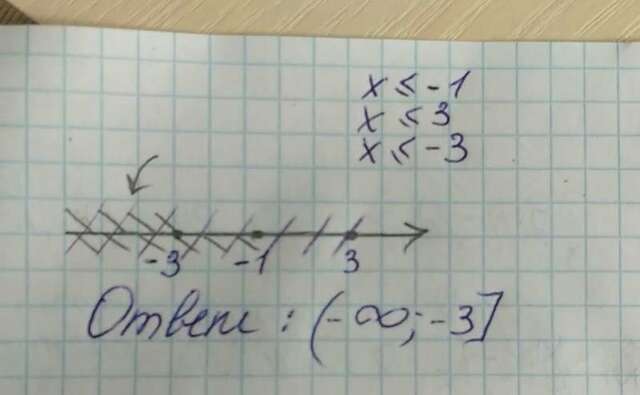 x ≤ -1
x ≤ 3
x ≤ -3
-3 -1 3
Ответ : (-∞; -3]